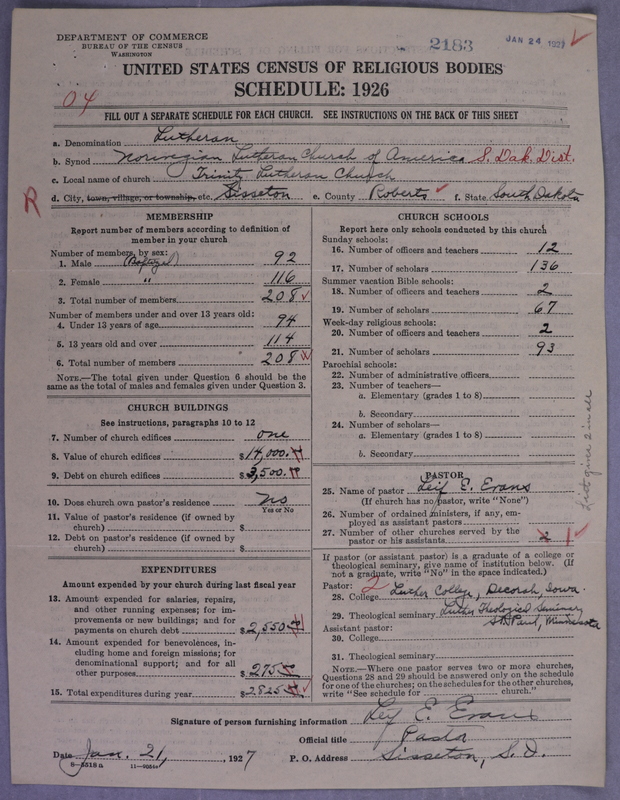 DEPARTMENT OF COMMERCE
BUREAU OF THE CENSUS
WASHINGTON
2183
JAN 24 1927
UNITED STATES CENSUS OF RELIGIOUS BODIES
SCHEDULE: 1926
04
FILL OUT A SEPARATE SCHEDULE FOR EACH CHURCH. SEE INSTRUCTIONS ON THE BACK OF THIS SHEET
a. Denomination Lutheran
b. Synod Norwegian Lutheran Church of America S. Dak. Dist.
c. Local name of church Trinity Lutheran Church
d. City, town, village, or township, etc. Sisseton e. County Roberts f. State South Dakota
R
MEMBERSHIP
Report number of members according to definition of
member in your church
Number of members, by sex:
1. Male (Baptized) 92
2. Female " 116
3. Total number of members 208
Number of members under and over 13 years old:
4. Under 13 years of age 94
5. 13 years old and over 114
6. Total number of members 208
NOTE.—The total given under Question 6 should be the
same as the total of males and females given under Question 3.
CHURCH BUILDINGS
See instructions, paragraphs 10 to 12
7. Number of church edifices one
8. Value of church edifices $14,000.
9. Debt on church edifices $3,500.
10. Does church own pastor's residence? no
Yes or No
11. Value of pastor's residence (if owned by
church) $
12. Debt on pastor's residence (if owned by
church) $
EXPENDITURES
Amount expended by your church during last fiscal year
13. Amount expended for salaries, repairs,
and other running expenses; for im-
provements or new buildings; and for
payments on church debt $2,550.
14. Amount expended for benevolences, in-
cluding home and foreign missions; for
denominational support; and for all
other purposes $275
15. Total expenditures during year $2825
CHURCH SCHOOLS
Report here only schools conducted by this church
Sunday schools:
16. Number of officers and teachers 12
17. Number of scholars 136
Summer vacation Bible schools:
18. Number of officers and teachers 2
19. Number of scholars 67
Week-day religious schools:
20. Number of officers and teachers 2
21. Number of scholars 93
Parochial schools:
22. Number of administrative officers
23. Number of teachers—
a. Elementary (grades 1 to 8)
b. Secondary
24. Number of scholars—
a. Elementary (grades 1 to 8)
b. Secondary
PASTOR
25. Name of pastor Leif E. Evans
(If church has no pastor, write "None")
26. Number of ordained ministers, if any, em-
ployed as assistant pastors
27. Number of other churches served by the
pastor or his assistants 2 1
If pastor (or assistant pastor) is a graduate of a college or
theological seminary, give name of institution below. (If
not a graduate, write "No" in the space indicated.)
Pastor: 2
28. College Luther College, Decorah, Iowa.
29. Theological seminary Luther Theological Seminary
St. Paul, Minnesota
Assistant pastor:
30. College
31. Theological seminary
NOTE.—Where one pastor serves two or more churches,
Questions 28 and 29 should be answered only on the schedule
for one of the churches; on the schedules for the other churches,
write "See schedule for church."
Signature of person furnishing information Leif E. Evans
Official title Pastor
Date Jan. 21, 1927 P. O. Address Sisseton, S. D.
8-5518a